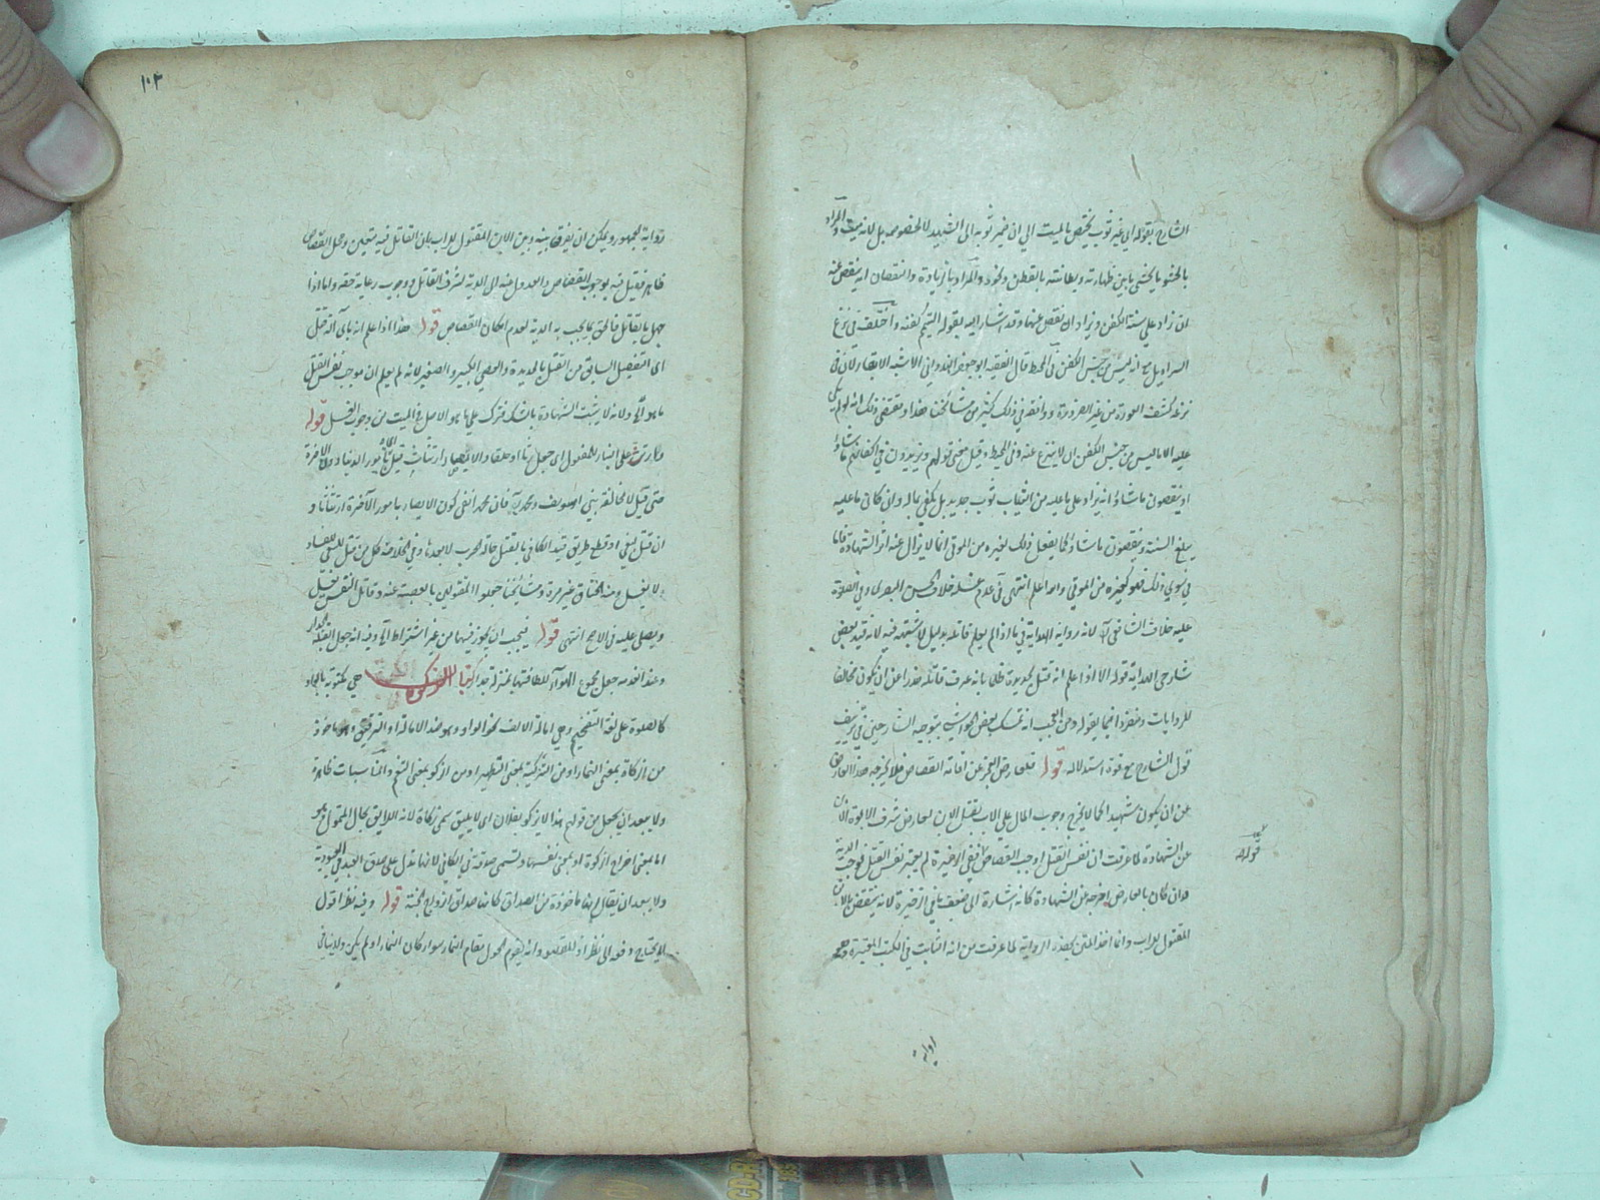 الشارح بقوله اى غير ثوب يختص بالميت الى ان ضمير ثوبه الى الشهيد لا لخصوصه بل لانه ميت والمراد
بالحشو ما يحشى ما بين ظهارته وبطانته بالقطن ونحوه والمراد بالزيادة والنقصان انه ينقص عنه
ان زاد على سنة الكفن ويزاد ان نقص عنها وقد اشار اليه بقوله ليتم كفنه واختلف فى نزع
السراويل مع انه ليس من جنس الكفن فى المحيط قال الفقيه ابو جعفر الهندوانى الاشبه الابقاء لان فى
نزعه كشف العورة من غير الضرورة ووافقه فى ذلك كثير من مشائخنا هذا ويقتضى ذلك انه لو لم يكن
عليه الا ما ليس من جنس الكفن ان لا ينزع عنه وفى المحيط وقيل معنى قولهم ويزيدون فى اكفانهم ما شاؤا
او ينقصون ما شاؤا انه يزاد على ما عليه من الثياب ثوب جديد بل يكفى بماله وان كان ما عليه
يبلغ السنة وينقصون ما شاؤا كما يفعل ذلك لغيره من الموتى انما لا يزال عنه اثر الشهادة فاما
فى سوى ذلك فهو كغيره من الموتى والله اعلم انتهى فى عدم غسله خلاف الحسن البصرى وفى الصلوة
عليه خلاف الشافعى لانه رواية الهداية فى ما اذا لم يعلم قاتله بدليل لا شبهة فيه لانه قيد بعض
شارحى الهداية قوله الا اذا علم انه قتل بحديدة ظلما بانه عرف قاتله حذرا عن ان يكون مخالفا
للروايات ومنفردا فيما يقوله ومن العجب انه تمسك بعض الحواشى بتوجيه الشارحين فى تزييف
قول الشارح مع قوة استدلاله قوله فلعارض العجز عن اقامة القصاص فلا يخرجه هذا العارض
عن ان يكون شهيدا كما لا يخرج وجوب المال على الاب بقتل الابن لعارض شرف الابوة الابن
عن الشهادة لما عرفت ان نفس القتل اوجب القصاص ففى الاخيرة لم يعتبر نفس القتل فوجب الدية
وان كان بالعارض اخرجه عن الشهادة كانه اشارة الى ضعف ما فى الذخيرة لانه ينتقض بالابن
المقتول للاب وانما اخذ المتن بهذه الرواية لما عرفت من انه الثابت فى الكتب المعتبرة وهو
قوله
رواية
١٠٣
رواية الجمهور ويمكن ان يفرق بينه وبين الابن المقتول للاب بان القاتل فيه متعين ومحل القصاص
ظاهر فقيل فيه بوجوب القصاص والعدول عنه الى الدية لشرف القاتل ووجوب رعاية حقه واما اذا
جهل القاتل فالحق ما يجب به الدية لعدم امكان القصاص قوله هذا اذا علم انه باى آلة قتل
اى التفصيل السابق من القتل بالحديدة والعصا الكبير والصغير لانه لم يعلم ان موجب نفس القتل
ما هو الخ ولانه لا يثبت الشهادة بالشك فترك على ما هو الاصل فى الميت من وجوب الغسل قوله
او ارتث على البناء للمفعول اى حمل رثا او خلقا والايصاء ارتثاث قيل بامور الدنيا والآخرة
حتى قيل لا مخالفة بينى ابى يوسف ومحمد فان محمد انفى كون الايصاء بامور الآخرة ارتثاثا و
ان قتل لبغى او قطع طريق قيد الكافى بالقتل حالة الحرب لا بعدها وفى الخلاصة كل من قتل للسعى بالفساد
لا يغسل ومنه الخناق غير مرة ومشائخنا جعلوا المقتولين بالعصبية عنه وقاتل النفس يغسل
ويصلى عليه فى الاصح انتهى قوله فيجب ان يجوز فيهما من غير اشتراط الخ وفيه انه جعل القبلة الجدار
وعند انهدمه جعل مجموع الهواء للطافتها بمنزلة جدار كتاب الزكوة هى مكتوبة بالواو
كالصلوة على لغة التفخيم وهى امالة الالف نحو الواو وهو ضد الامالة او الترقيق وهو ماخوذ
من الزكاة بمعنى النماء او من التزكية بمعنى التطهير او من ازكو بمعنى التنعم والمناسبات ظاهرة
ولا يبعد ان يجعل من قولهم هذا لا يزكو بفلان اى لا يليق سمى زكاة لانه اللايق بحال المتمول هو
اما بمعنى اخراج الزكوة او بمعنى نفسها وتسمى صدقة فى الكافى لانها تدل على صدق العبد فى العبودية
ولا يبعد ان يقال انها ماخوذة من الصداق كانها صداق ازواج الجنة قوله وفيه نظر اقول
لا يحتاج دفعه الى نظر اذ المقصود انه يقوم الحول مقام النماء سواء كان النماء او لم يكن ولا ينافى